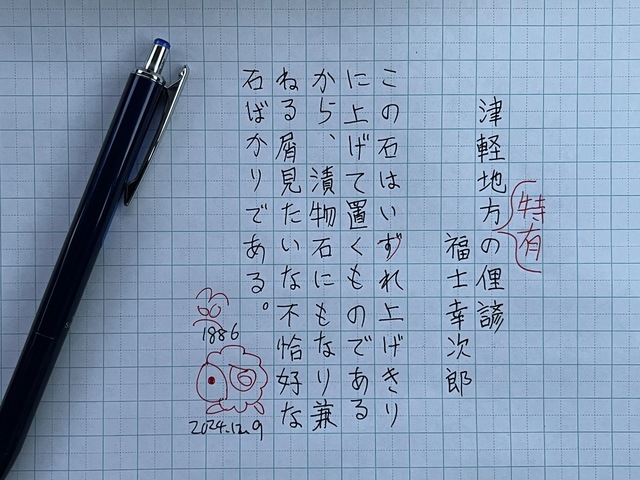 津軽地方の俚諺
特有
福士幸次郎
この石はいずれ上げきり
に上げて置くものである
から、漬物石にもなり兼
ねる屑見たいな不恰好な
石ばかりである。
1886
2024.12.9